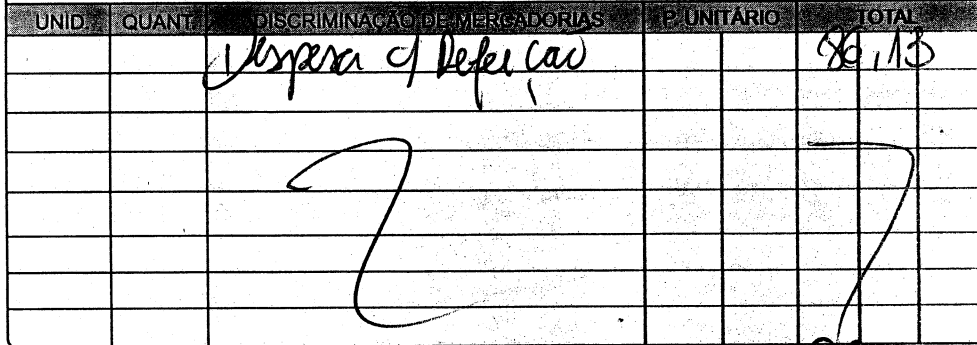 UNID. QUANT. DISCRIMINAÇÃO DE MERCADORIAS P. UNITÁRIO TOTAL
Despesa c/ Refeição 86,13